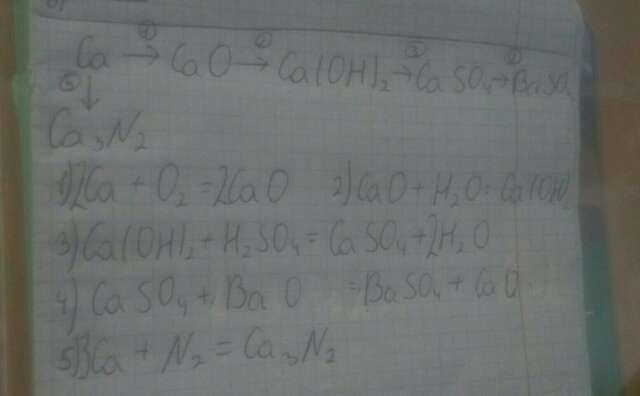 ① ② ③ ④
Ca → CaO → Ca(OH)₂ → CaSO₄ → BaSO₄
⑤ ↓
Ca₃N₂
1) 2Ca + O₂ = 2CaO 2) CaO + H₂O = Ca(OH)₂
3) Ca(OH)₂ + H₂SO₄ = CaSO₄ + 2H₂O
4) CaSO₄ + BaO = BaSO₄ + CaO
5) 3Ca + N₂ = Ca₃N₂